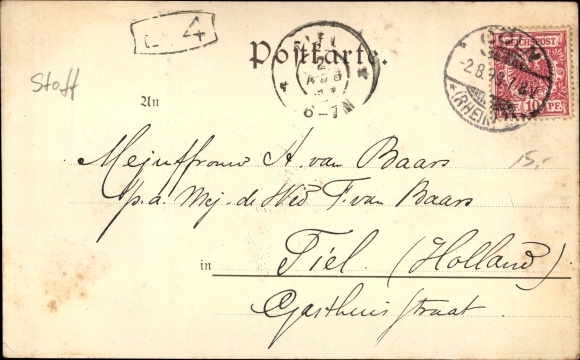 4
Postkarte.
REICHSPOST
10 PF
2.8.98.7-8V.
(RHEIN)
6-7N
Stoff
An
Mejuffrouw A. van Baars
p.a. Mej. de Wed F. van Baars
15,-
in Tiel. (Holland)
Gasthuisstraat.